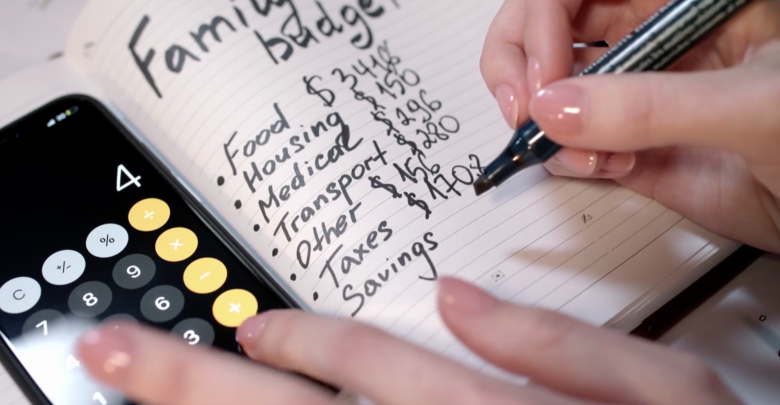 Family
budget
Food $ 3418
• Housing $ 150
• Medical $ 296
• Transport $ 280
• Other $ 156
• Taxes $ 1703
Savings
4
C +/- % ÷
7 8 9 ×
4 6 −
1 3 +